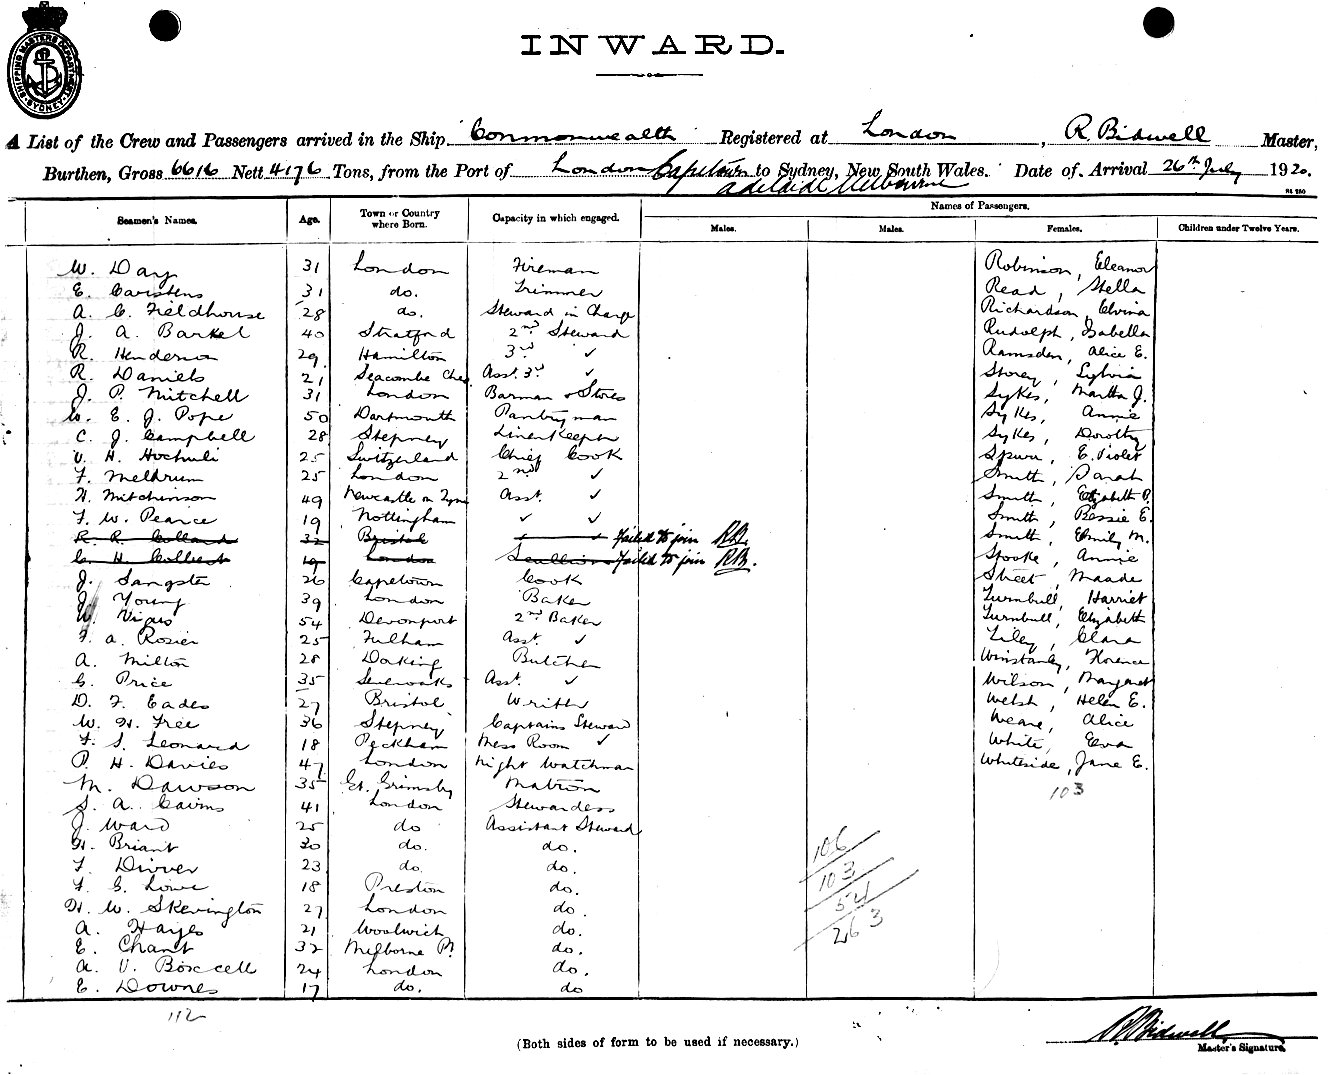 SHIPPING MASTERS DEPARTMENT SYDNEY
INWARD.
A List of the Crew and Passengers arrived in the Ship Commonwealth Registered at London, R Bidwell Master,
Burthen, Gross 6616 Nett 4176 Tons, from the Port of London Capetown to Sydney, New South Wales. Date of Arrival 26th July 1920.
Adelaide Melbourne
Names of Passengers.
Seamen's Names. Age. Town or Country where Born. Capacity in which engaged. Males. Males. Females. Children under Twelve Years.
W. Day 31 London Fireman Robinson, Eleanor
E. Carstens 31 do. Trimmer Read, Stella
A. C. Fieldhouse 28 do. Steward in Charge Richardson, Elvina
J. A. Barkel 40 Stratford 2nd Steward Rudolph, Isabella
R. Henderson 29. Hamilton 3rd ✓ Ramsden, Alice E.
R. Daniels 21 Seacombe Ches Asst. 3rd ✓ Storey, Sylvia
J. P. Mitchell 31 London Barman & Stores Sykes, Martha J.
W. E. J. Pope 50 Dartmouth Pantryman Sykes, Annie
C. J. Campbell 28 Stepney Linenkeeper Sykes, Dorothy
U. H. Hochuli 25 Switzerland Chief Cook Spurr, E. Violet
F. Meldrum 25 London 2nd ✓ Smith, Sarah
H. Mitchinson 49 Newcastle on Tyne Asst. ✓ Smith, Elizabeth P.
F. W. Pearce 19 Nottingham ✓ ✓ Smith, Bessie E.
R. R. Collard 32 Bristol Failed to join RB. Smith, Emily M.
C. H. Colbert 19 London Scullion Failed to join RB. Stooke, Annie
J. Sangster 26 Capetown Cook Street, Maade
J. Young 39 London Baker Turnbull, Harriet
Vigus 54 Devonport 2nd Baker Turnbull, Elizabeth
F. A. Rosier 25 Fulham Asst. ✓ Tiley, Clara
A. Milton 28 Dorking Butcher Winstanly, Florence
G. Price 35 Sevenoaks Asst. ✓ Wilson, Margaret
D. F. Eades 27 Bristol Writer Welsh, Helen E.
W. H. Free 36 Stepney Captains Steward Weare, Alice
F. S. Leonard 18 Peckham Mess Room ✓ White, Eva
P. H. Davies 47 London Night Watchman Whiteside, Jane E.
M. Dawson 35 Gt. Grimsby Matron 103
S. A. Cairns 41 London Stewardess
J. Ward 25 do Assistant Steward
H. Briant 30 do. do. 106
F. Divver 23 do. do. 103
F. G. Lowe 18 Preston do. 54
H. W. Skevington 27 London do. 263
A. Hayes 21 Woolwich do.
E. Chant 32 Milborne Pt. do.
A. V. Boxcell 24 London do.
E. Downes 17 do. do
112
(Both sides of form to be used if necessary.)
R Bidwell
Master's Signature.